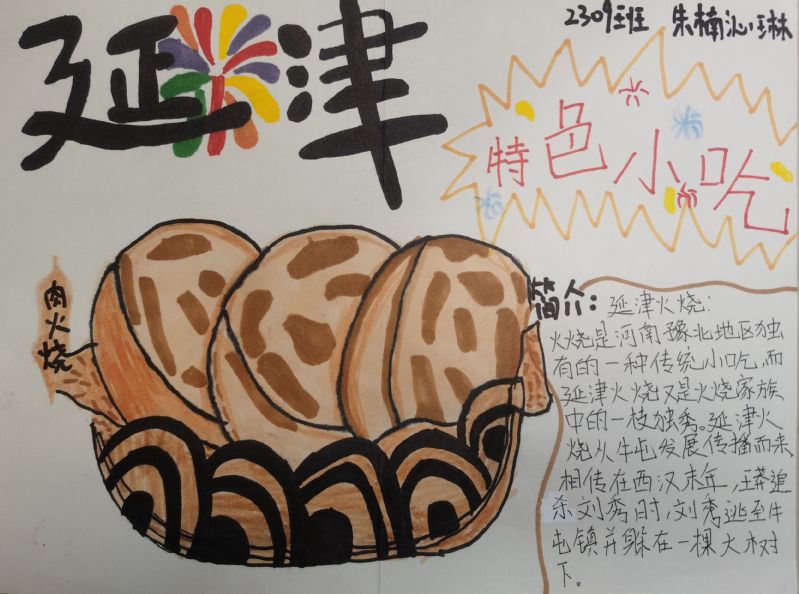 延津
2309班 朱楠沁琳
特色小吃
肉火烧
简介：延津火烧：
火烧是河南豫北地区独
有的一种传统小吃，而
延津火烧又是火烧家族
中的一枝独秀。延津火
烧从牛屯发展传播而来
相传在西汉末年，王莽追
杀刘秀时，刘秀逃至牛
屯镇并躲在一棵大树
下。